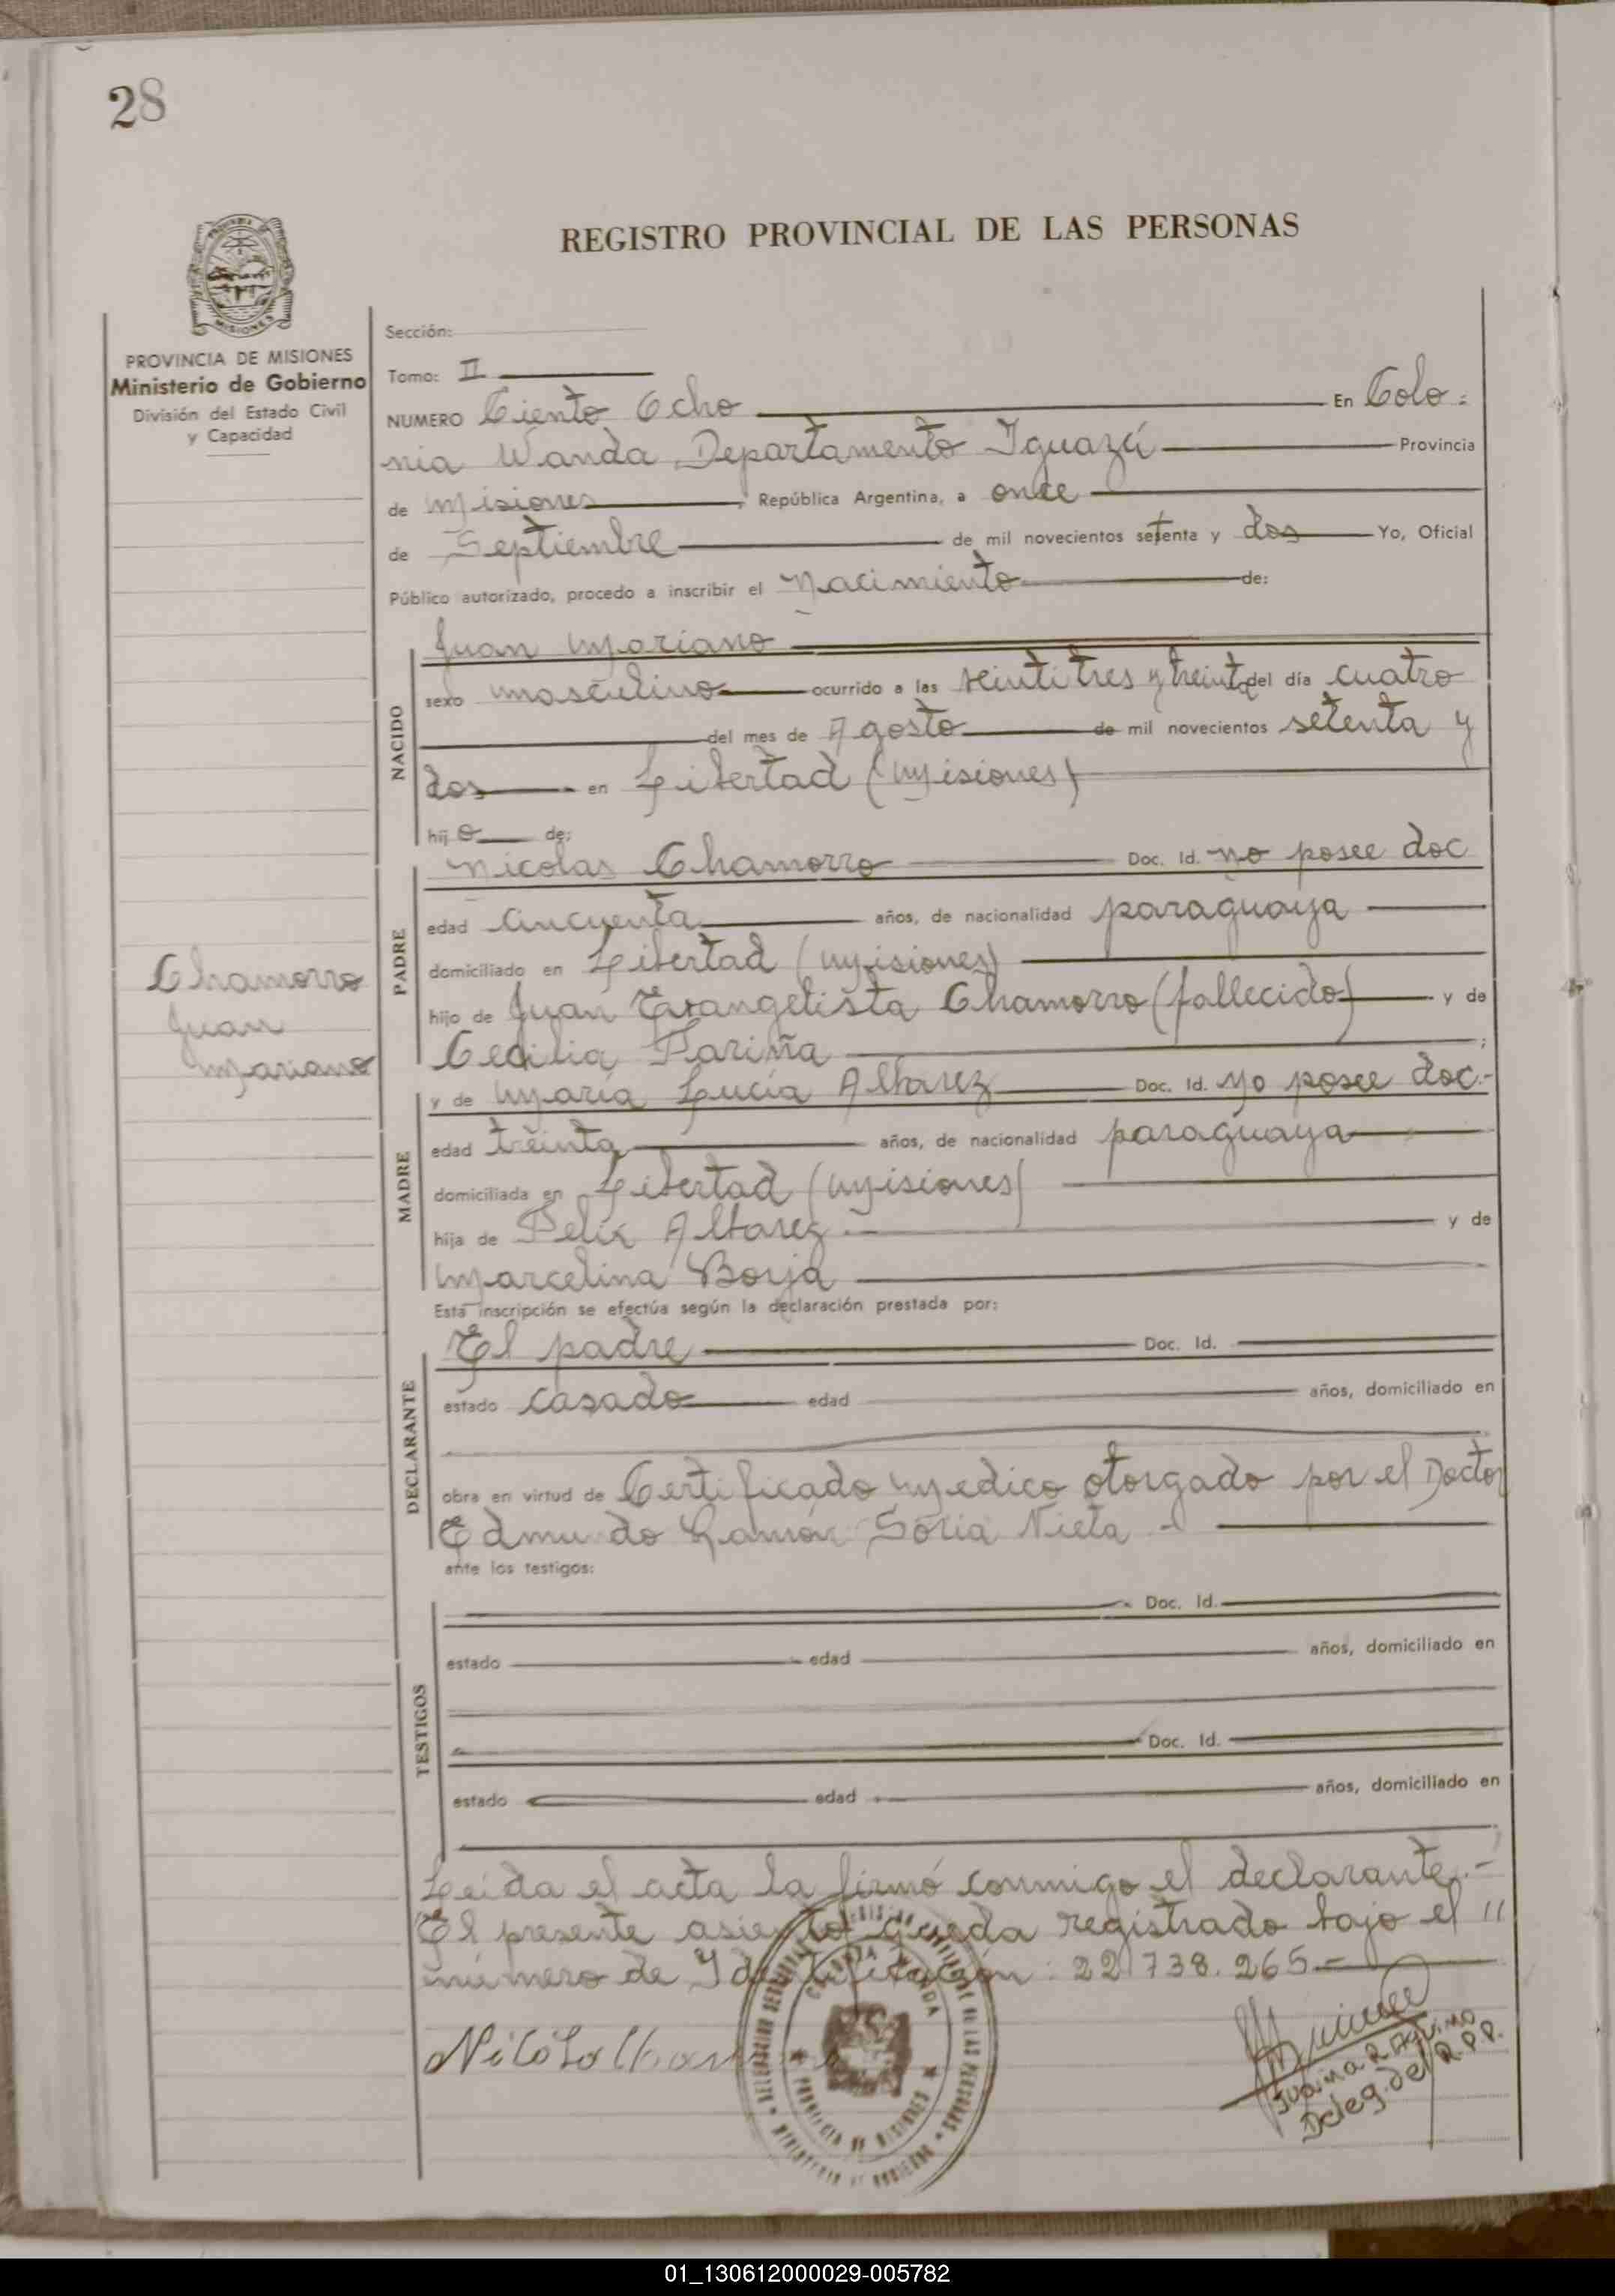 28
REGISTRO PROVINCIAL DE LAS PERSONAS
MISIONES
PROVINCIA DE MISIONES
Ministerio de Gobierno
División del Estado Civil
y Capacidad
Sección:
Tomo: II
NUMERO Ciento Ocho En Colo-
nia Wanda, Departamento Iguazú Provincia
de Misiones, República Argentina, a once
de Septiembre de mil novecientos setenta y dos Yo, Oficial
Público autorizado, procedo a inscribir el Nacimiento de:
NACIDO
Juan Mariano
sexo masculino ocurrido a las veintitres y treinta del día cuatro
del mes de Agosto de mil novecientos setenta y
dos en Libertad (Misiones)
hijo de:
PADRE
Nicolas Chamorro Doc. Id. no posee doc
edad cincuenta años, de nacionalidad paraguaya
domiciliado en Libertad (Misiones)
hijo de Juan Evangelista Chamorro (fallecido) y de
Cecilia Fariña ;
Chamorro
Juan
Mariano
MADRE
y de María Lucía Alvarez Doc. Id. no posee doc.-
edad treinta años, de nacionalidad paraguaya
domiciliada en Libertad (Misiones)
hija de Felix Alvarez y de
Marcelina Borja
Esta inscripción se efectúa según la declaración prestada por:
DECLARANTE
El padre Doc. Id.
estado casado edad años, domiciliado en
obra en virtud de Certificado Medico otorgado por el Doctor
Edmundo Ramón Soria Nieta -
ante los testigos:
TESTIGOS
Doc. Id.
estado edad años, domiciliado en
Doc. Id.
estado edad años, domiciliado en
Leida el acta la firmó conmigo el declarante.-
El presente asiento queda registrado bajo el "
número de Identificación: 22.738.265.-
COLONIA WANDA
PROVINCIA DE MISIONES
MINISTERIO DE GOBIERNO
Juana R. Aquino
Deleg. del R.P.P.
01_130612000029-005782